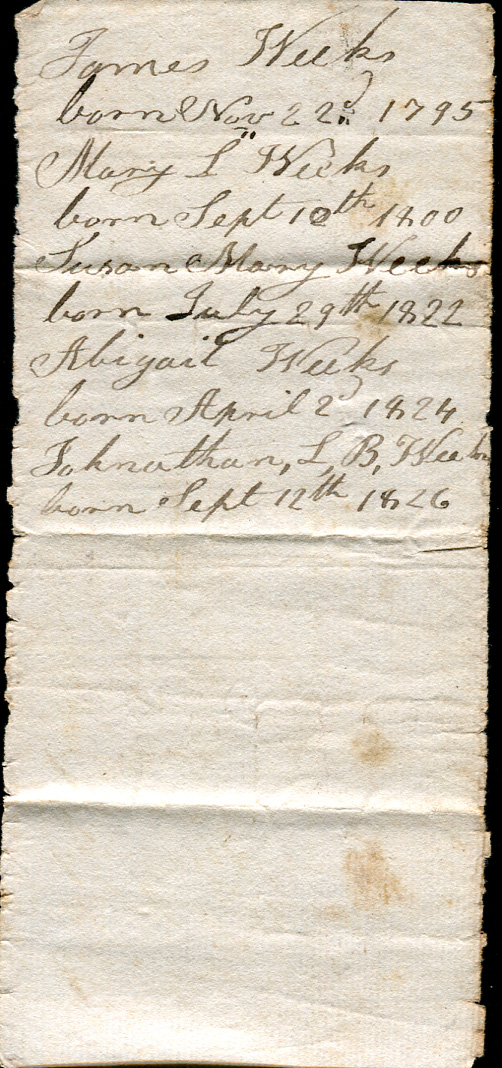 James Weeks
born Nov 22d 1795
Mary L" Weeks
born Sept 10th 1800
Susan Mary Weeks
born July 29th 1822
Abigail Weeks
born April 2d 1824
Johnathan, L, B, Weeks
born Sept 12th 1826